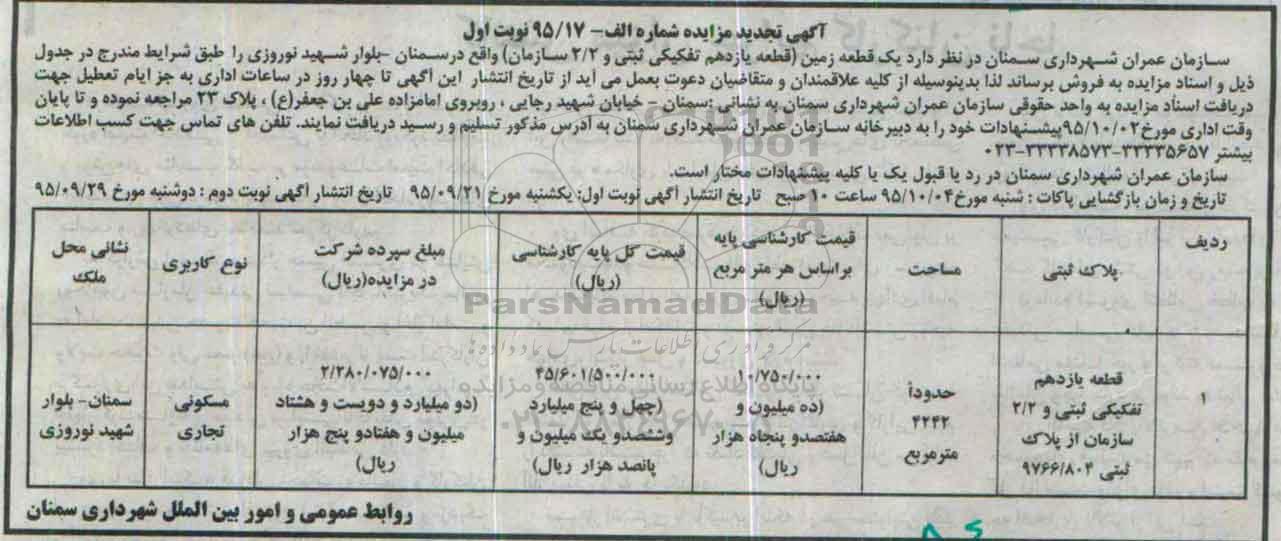 آگهی تجدید مزایده شماره الف- ۹۵/۱۷ نوبت اول
سازمان عمران شهرداری سمنان در نظر دارد یک قطعه زمین (قطعه یازدهم تفکیکی ثبتی و ۲/۲ سازمان) واقع درسمنان -بلوار شهید نوروزی را طبق شرایط مندرج در جدول
ذیل و اسناد مزایده به فروش برساند لذا بدینوسیله از کلیه علاقمندان و متقاضیان دعوت بعمل می آید از تاریخ انتشار این آگهی تا چهار روز در ساعات اداری به جز ایام تعطیل جهت
دریافت اسناد مزایده به واحد حقوقی سازمان عمران شهرداری سمنان به نشانی :سمنان - خیابان شهید رجایی ، روبروی امامزاده علی بن جعفر(ع) ، پلاک ۲۳ مراجعه نموده و تا پایان
وقت اداری مورخ۹۵/۱۰/۰۲پیشنهادات خود را به دبیرخانه سازمان عمران شهرداری سمنان به آدرس مذکور تسلیم و رسید دریافت نمایند. تلفن های تماس جهت کسب اطلاعات
بیشتر ۳۳۳۳۵۶۵۷-۳۳۳۳۸۵۷۳-۰۲۳
سازمان عمران شهرداری سمنان در رد یا قبول یک یا کلیه پیشنهادات مختار است.
تاریخ و زمان بازگشایی پاکات : شنبه مورخ۹۵/۱۰/۰۴ ساعت ۱۰ صبح تاریخ انتشار آگهی نوبت اول: یکشنبه مورخ ۹۵/۰۹/۲۱ تاریخ انتشار آگهی نوبت دوم : دوشنبه مورخ ۹۵/۰۹/۲۹
ردیف
پلاک ثبتی
مساحت
قیمت کارشناسی پایه
براساس هر متر مربع
(ریال)
قیمت کل پایه کارشناسی
(ریال)
مبلغ سپرده شرکت
در مزایده(ریال)
نوع کاربری
نشانی محل
ملک
۱
قطعه یازدهم
تفکیکی ثبتی و ۲/۲
سازمان از پلاک
ثبتی ۹۷۶۶/۸۰۴
حدوداً
۴۲۴۲
مترمربع
۱۰/۷۵۰/۰۰۰
(ده میلیون و
هفتصدو پنجاه هزار
ریال)
۴۵/۶۰۱/۵۰۰/۰۰۰
(چهل و پنج میلیارد
وششصدو یک میلیون و
پانصد هزار ریال)
۲/۲۸۰/۰۷۵/۰۰۰
(دو میلیارد و دویست و هشتاد
میلیون و هفتادو پنج هزار
ریال)
مسکونی
تجاری
سمنان- بلوار
شهید نوروزی
روابط عمومی و امور بین الملل شهرداری سمنان
ParsNamadData
مرکز فرآوری اطلاعات پارس نماد داده ها